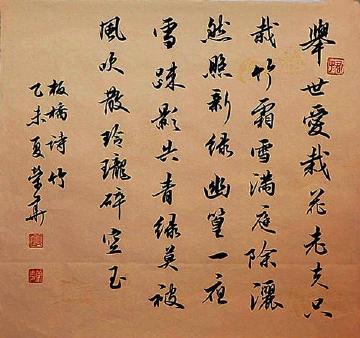 舉世愛栽花老夫只
栽竹霜雪滿庭除灑
然照新绿幽篁一夜
雪疎影失青绿莫被
風吹散玲瓏碎空玉
板橋詩竹
乙未夏榮華